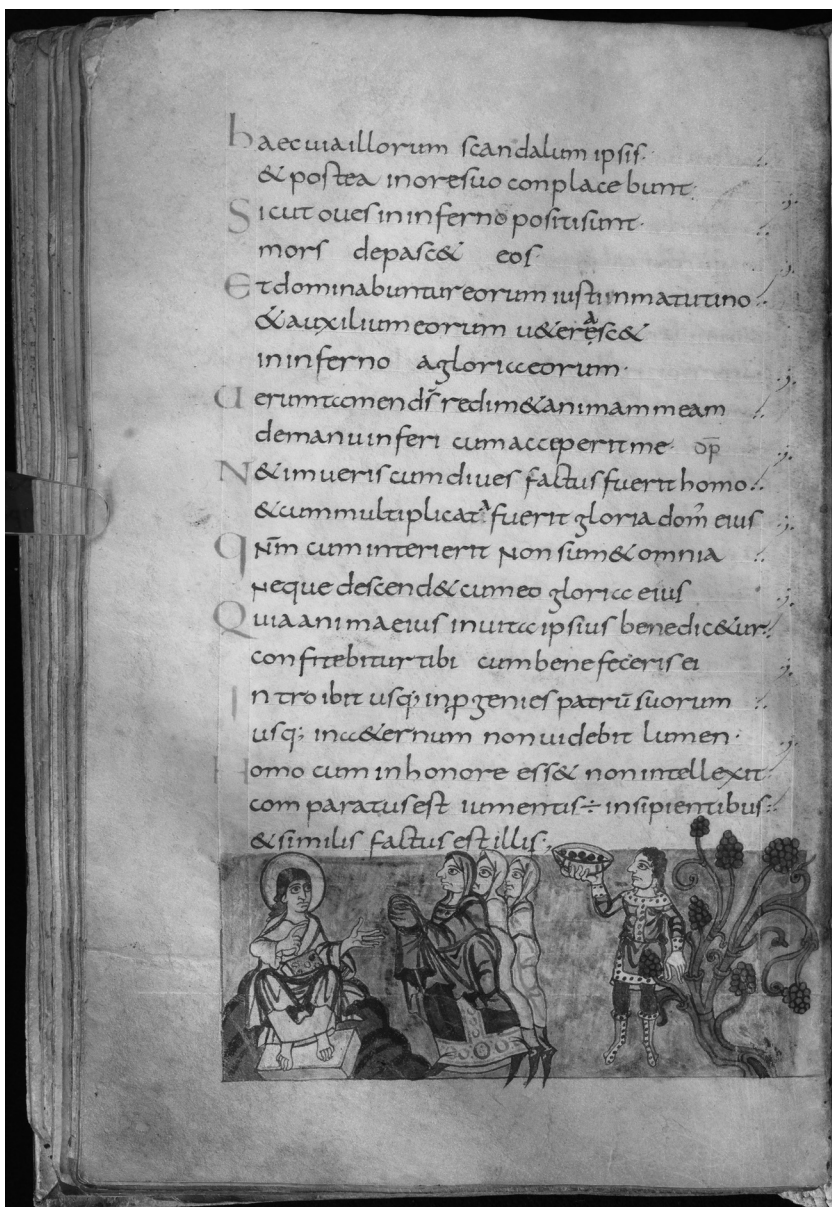 Haec uia illorum scandalum ipsis·
& postea in ore suo conplacebunt·
Sicut oues in inferno positi sunt·
mors depasc& eos·
Et dominabuntur eorum iusti in matutino
& auxilium eorum u&erasc&
in inferno a gloria eorum·
Uerumtamen ds̄ redim& animam meam
de manu inferi cum acceperit me· op̄
Ne timueris cum diues factus fuerit homo
& cum multiplicata fuerit gloria dom̄ eius
Qnm̄ cum interierit non sum& omnia
neque descend& cum eo gloria eius
Quia anima eius in uita ipsius benedic&ur
confitebitur tibi cum benefeceris ei
Introibit usq; in p̱genies patrū suorum
usq; in a&ernum non uidebit lumen·
Homo cum in honore ess& non intellexit
comparatus est iumentis ÷ insipientibus:
& similis factus est illis;